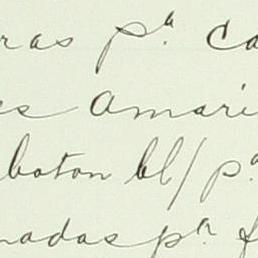 ras pª. Ca
es Amari
boton bl/ pª.
nadas pª. f